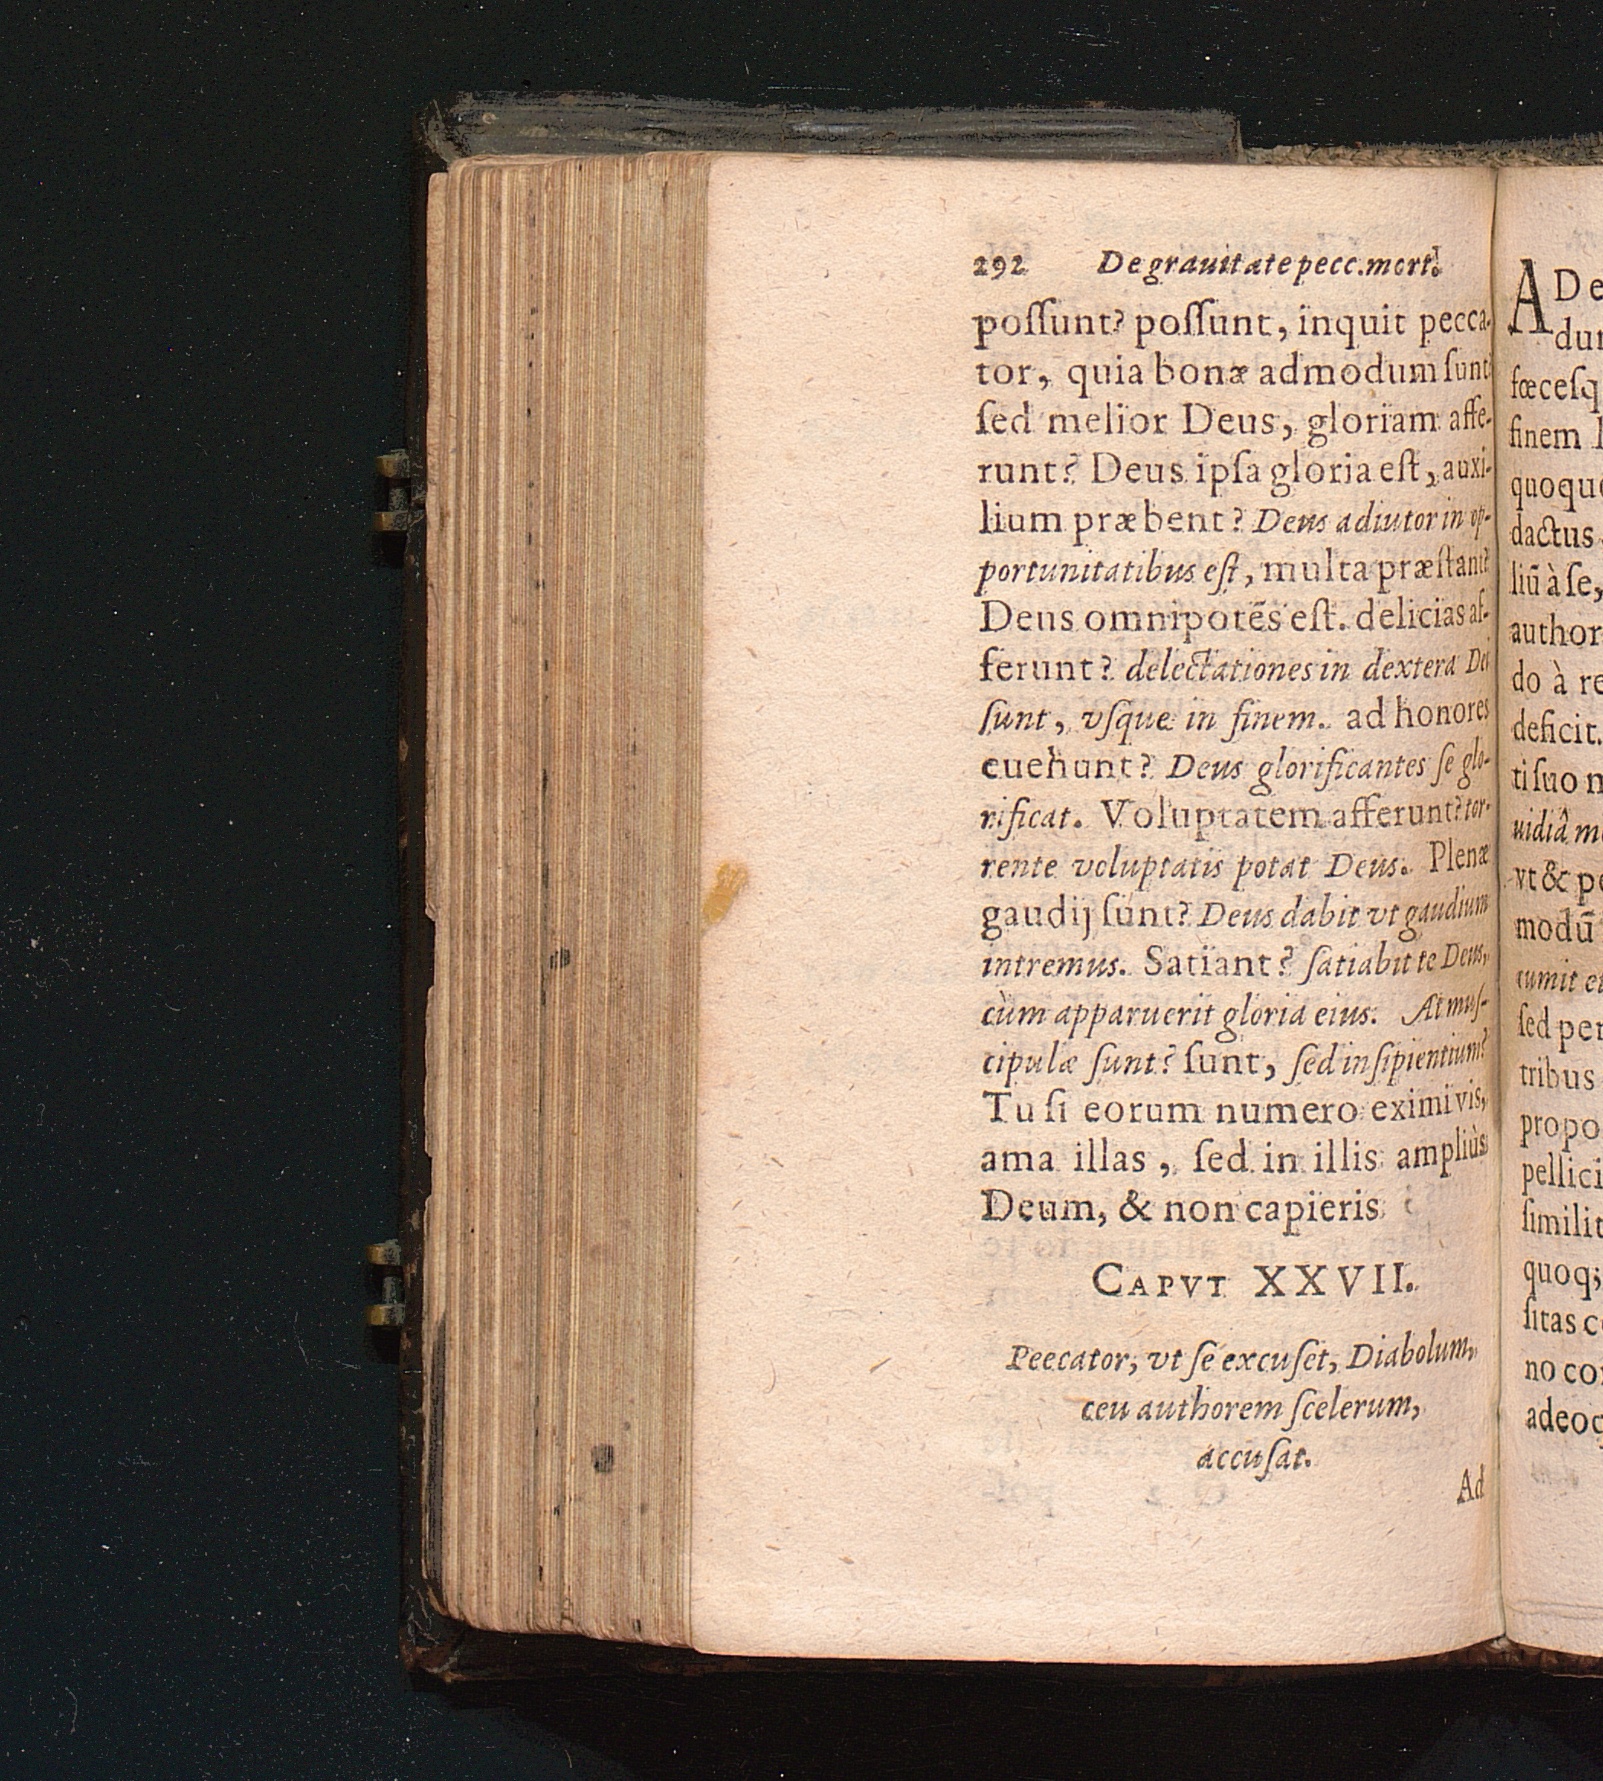 292 De grauitate pecc. mort.
poſſunt? poſſunt, inquit pecca-
tor, quia bonæ admodum ſunt
ſed melior Deus, gloriam affe-
runt? Deus ipſa gloria eſt, auxi-
lium præbent? Deus adiutor in op-
portunitatibus eſt, multa præſtant?
Deus omnipotēs eſt. delicias af-
ferunt? delectationes in dextera Dei
ſunt, vſque in finem. ad honores
euehunt? Deus glorificantes ſe glo-
rificat. Voluptatem afferunt? tor-
rente voluptatis potat Deus. Plenæ
gaudij ſunt? Deus dabit vt gaudium
intremus. Satiant? ſatiabit te Deus,
cùm apparuerit gloria eius. At muſ-
cipulæ ſunt? ſunt, ſed inſipientium?
Tu ſi eorum numero eximi vis,
ama illas, ſed in illis ampliùs
Deum, & non capieris.
CAPVT XXVII.
Peecator, vt ſe excuſet, Diabolum,
ceu authorem ſcelerum,
accuſat.
Ad
A De
dun
fœceſq
finem l
quoque
dactus
liū à ſe,
author
do à re
deficit.
ti ſuo m
uidiâ m
vt & pe
modū
cumit ei
ſed per
tribus
propo
pellici
ſimilit
quoq;
ſitas c
no con
adeoq